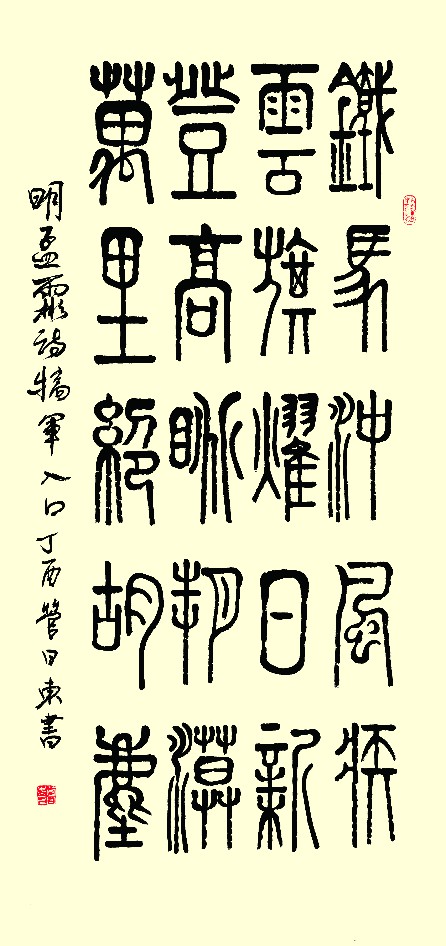 鐵馬沖風疾
雲旗耀日新
登高眺朔漠
萬里絕胡塵
明孟霦詩犒軍入口丁酉管日東書